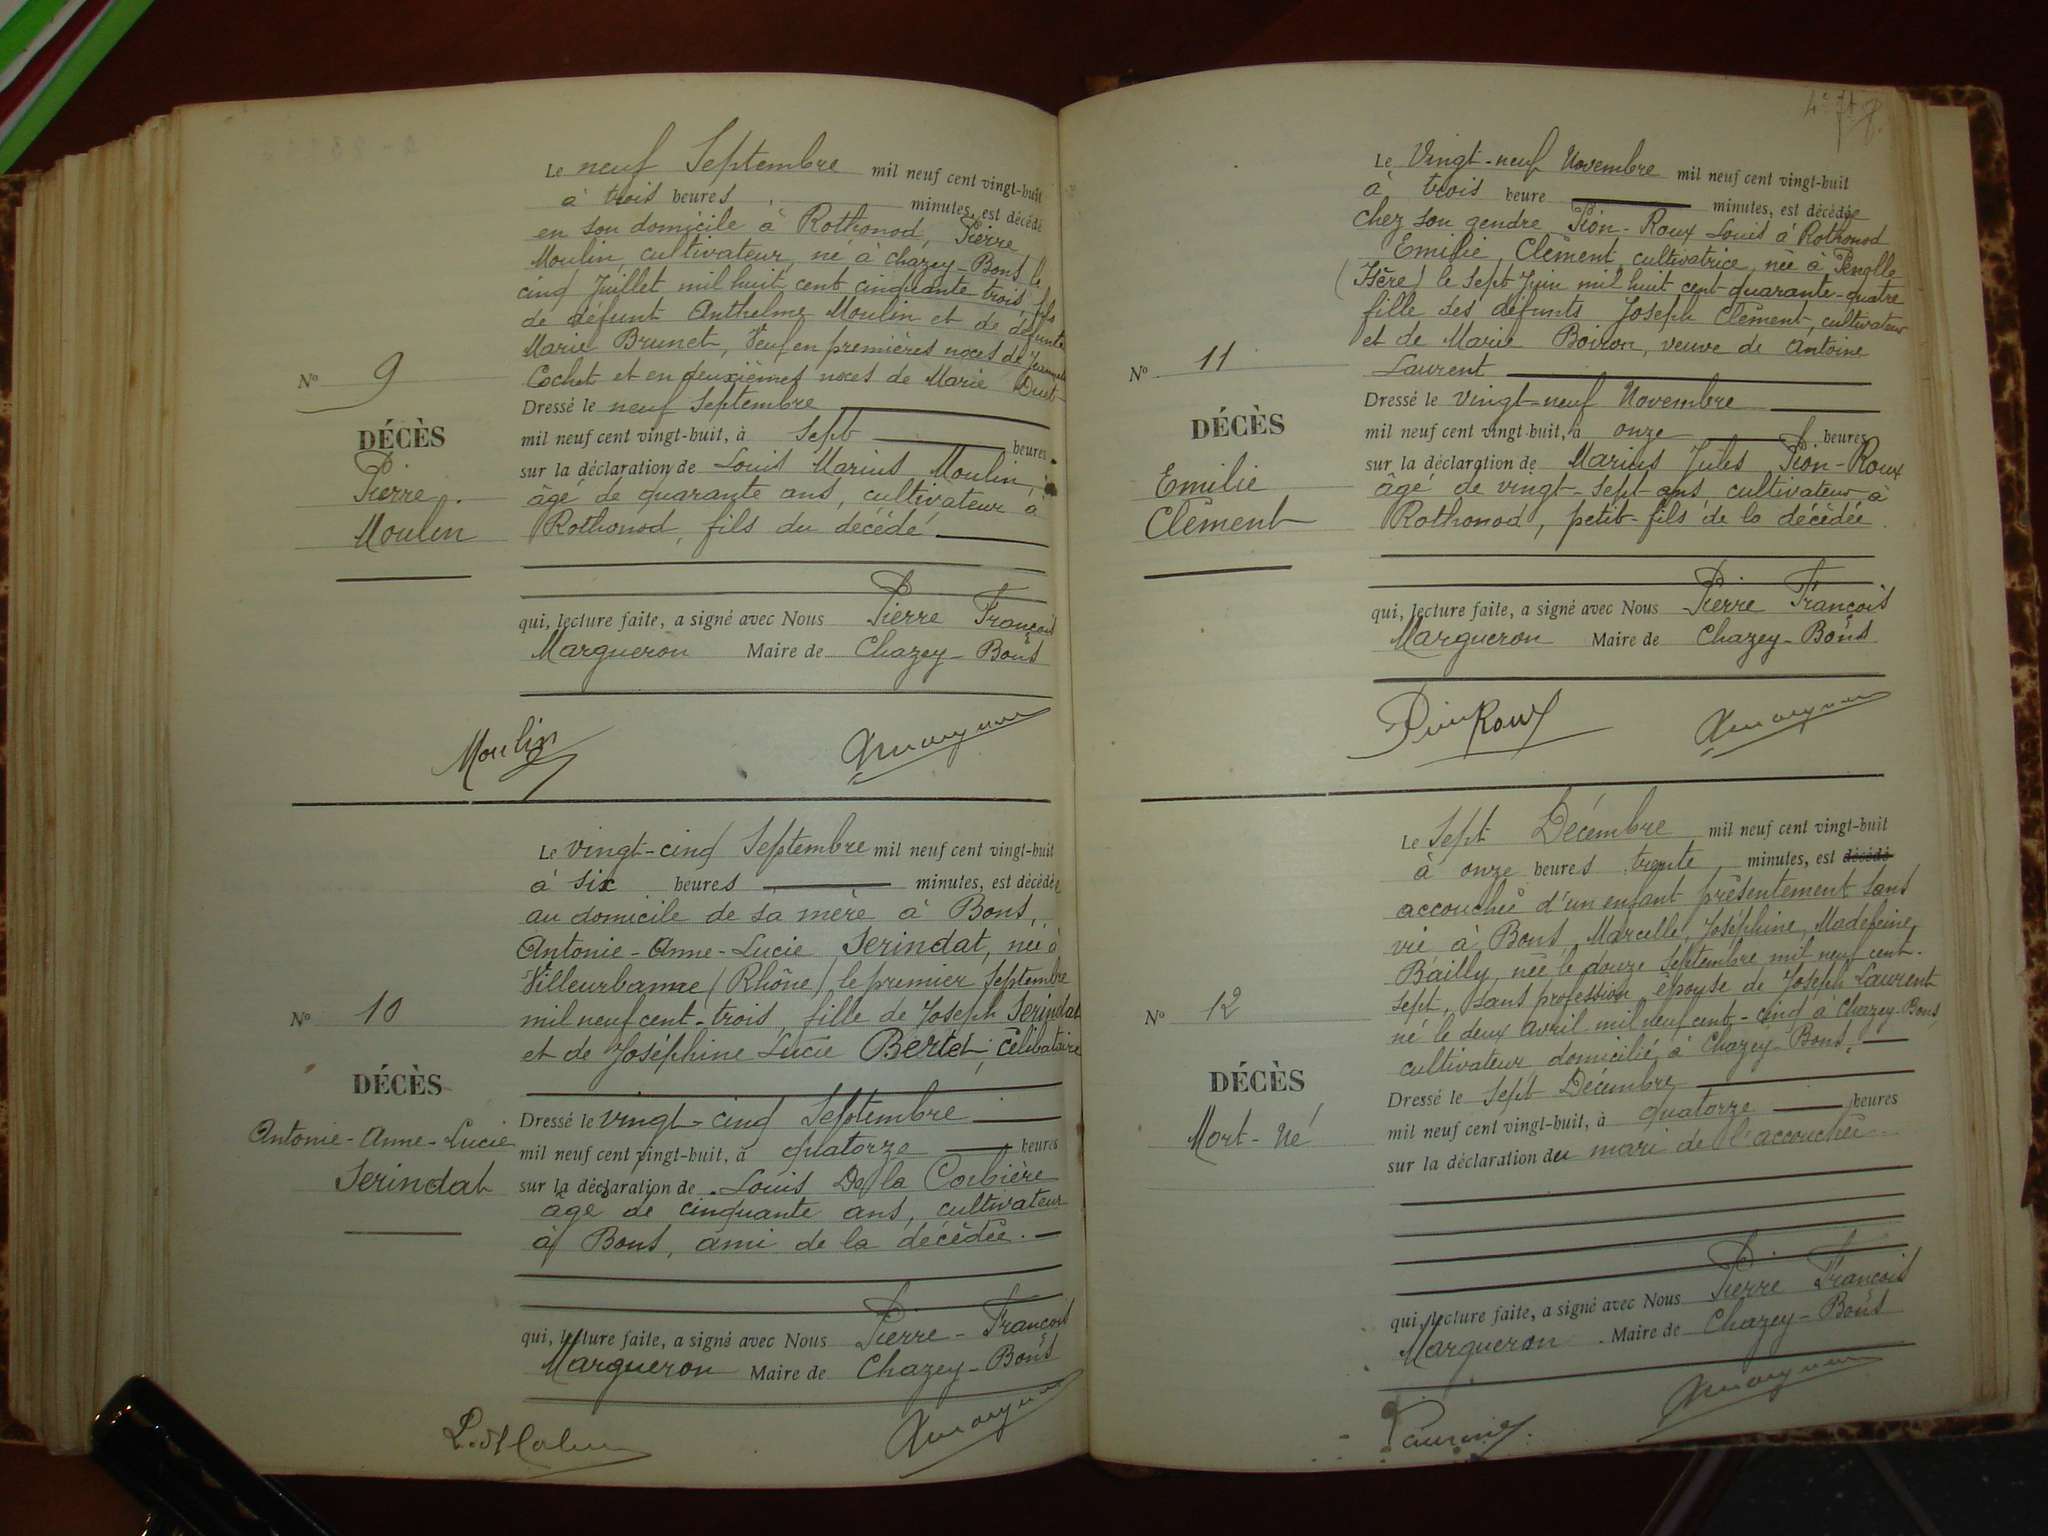 Le neuf Septembre mil neuf cent vingt-huit
à trois heures minutes, est décédé
en son domicile à Rothonod, Pierre
Moulin, cultivateur, né à chazey-Bons le
cinq Juillet mil huit cent cinquante trois, fils
de défunt Anthelme Moulin et de défunte
Marie Brunet, Veuf en premières noces de
Cochet et en deuxièmes noces de Marie
Nº 9
DÉCÈS
Pierre
Moulin
Dressé le neuf Septembre
mil neuf cent vingt-huit, à Sept heures
sur la déclaration de Louis Marius Moulin,
âgé de quarante ans, cultivateur à
Rothonod, fils du décédé
qui, lecture faite, a signé avec Nous Pierre François
Margueron Maire de Chazey-Bons
Moulin
Le vingt-cinq Septembre mil neuf cent vingt-huit
à six heures minutes, est décédée
au domicile de sa mère à Bons,
Antonie-Anne-Lucie Serindat, née à
Villeurbanne (Rhône) le premier Septembre
mil neuf cent-trois, fille de Joseph Serindat
et de Joséphine Lucie Bertet, célibataire
Nº 10
DÉCÈS
Antonie-Anne-Lucie
Serindat
Dressé le vingt-cinq Septembre
mil neuf cent vingt-huit, à quatorze heures
sur la déclaration de Louis De la Corbière
âgé de cinquante ans, cultivateur
à Bons, ami de la décédée.
qui, lecture faite, a signé avec Nous Pierre-François
Margueron Maire de Chazey-Bons
Le Vingt-neuf Novembre mil neuf cent vingt-huit
à trois heure minutes, est décédée
chez son gendre Pion-Roux Louis à Rothonod
Emilie, Clément, cultivatrice, née à Penolle
(Isère) le sept Juin mil huit cent quarante-quatre
fille des défunts Joseph Clément, cultivateur
et de Marie Boiron, veuve de Antoine
Laurent
Nº 11
DÉCÈS
Emilie
Clément
Dressé le Vingt-neuf Novembre
mil neuf cent vingt-huit, à onze heures
sur la déclaration de Marius Jules Pion-Roux
âgé de vingt-sept ans, cultivateur à
Rothonod, petit-fils de la décédée.
qui, lecture faite, a signé avec Nous Pierre François
Margueron Maire de Chazey-Bons
Pion Roux
Le Sept Décembre mil neuf cent vingt-huit
à onze heures trente minutes, est décédé
accouchée d'un enfant présentement sans
vie à Bons, Marcelle, Joséphine, Madeleine,
Bailly, née le douze Septembre mil neuf cent-
sept, sans profession épouse de Joseph Laurent
né le deux avril mil neuf cent-cinq à Chazey-Bons,
cultivateur domicilié à Chazey-Bons
Nº 12
DÉCÈS
Mort-Né
Dressé le Sept Décembre
mil neuf cent vingt-huit, à quatorze heures
sur la déclaration du mari de l'accouchée
qui, lecture faite, a signé avec Nous Pierre François
Margueron Maire de Chazey-Bons
Laurent